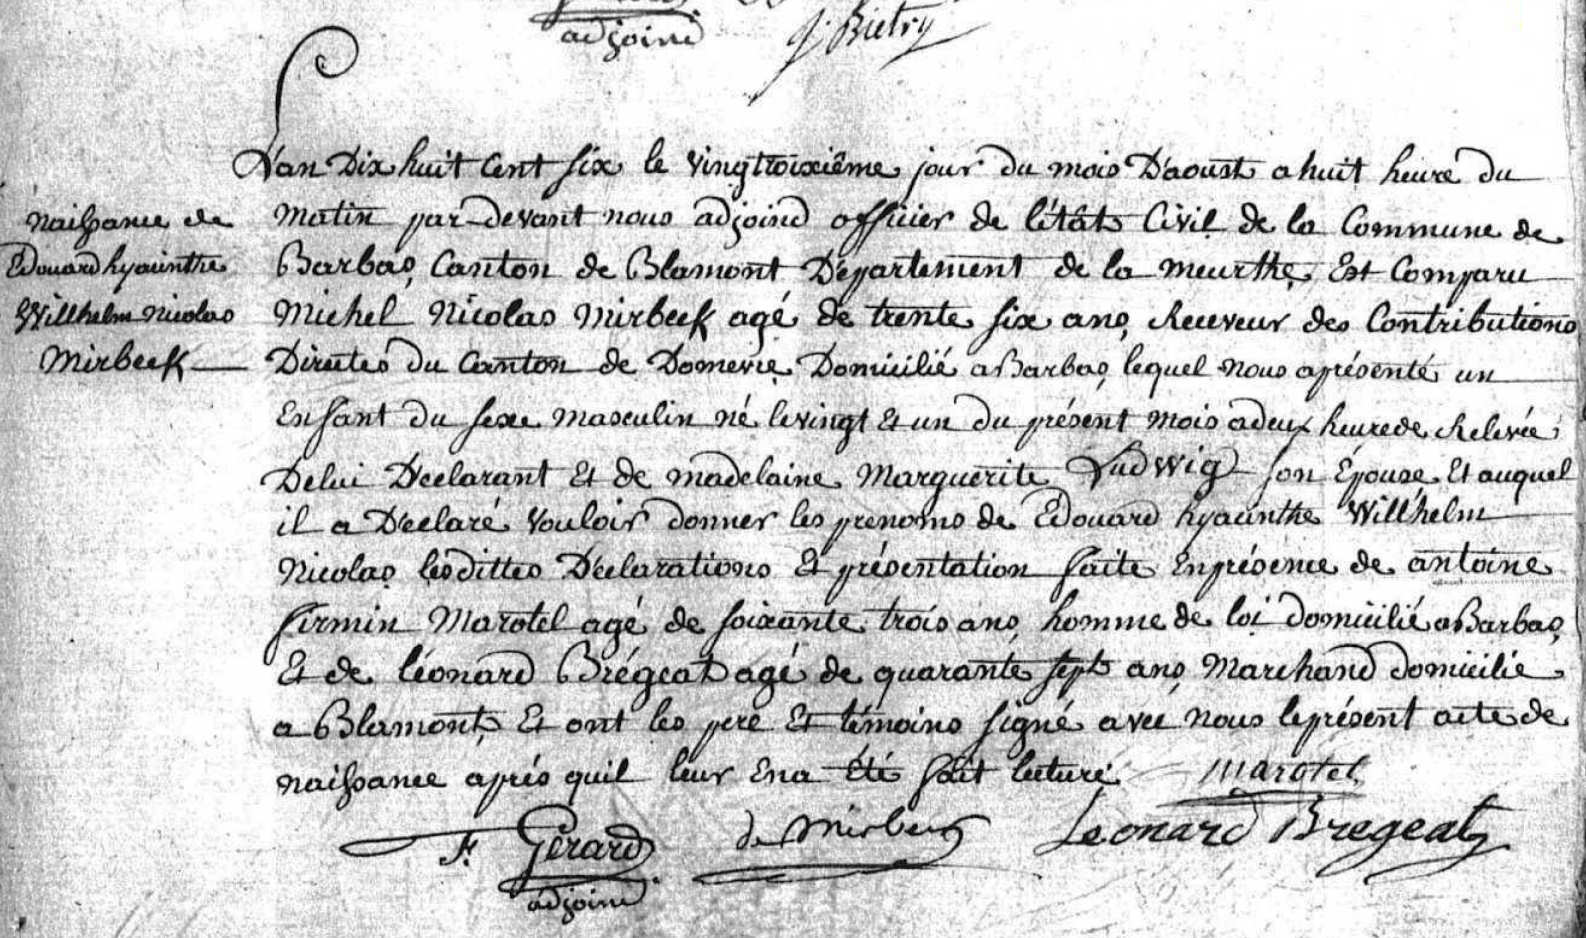 adjoind J. Bietry
L'an Dix huit Cent six le vingtroixiême jour du mois D'aoust a huit heure du
Matin par-devant nous adjoind officier de l'êtât Civil de la Commune de
Barbas, Canton de Blamont Département de la meurthe, Est Comparu
Michel Nicolas Mirbeck agé de trente six ans, Receveur des Contributions
Directes du Canton de Domevre, Domicilié a Barbas, lequel nous a présenté un
Enfant du sexe Masculin né le vingt Et un du présent Mois a deux heure de Relevée,
De lui Déclarant Et de madelaine Marguerite Ludwig son Épouse Et auquel
il a Déclaré vouloir donner les prenoms de Edouard hyacinthe Willhelm
Nicolas, lesdittes Déclarations Et présentation faite En présence de antoine
firmin Marotel agé de soixante trois ans, homme de loi domicilié a Barbas,
Et de léonard Brégeat agé de quarante sept ans, Marchand domicilié
a Blamont, Et ont les pere Et témoins signé avec nous le présent acte de
naissance aprés quil leur En a Été fait lecture Marotel
naissance de
Edouard hyacinthe
Willhelm Nicolas
Mirbeck
F. Gérard de Mirbeck Leonard Bregeat
adjoind